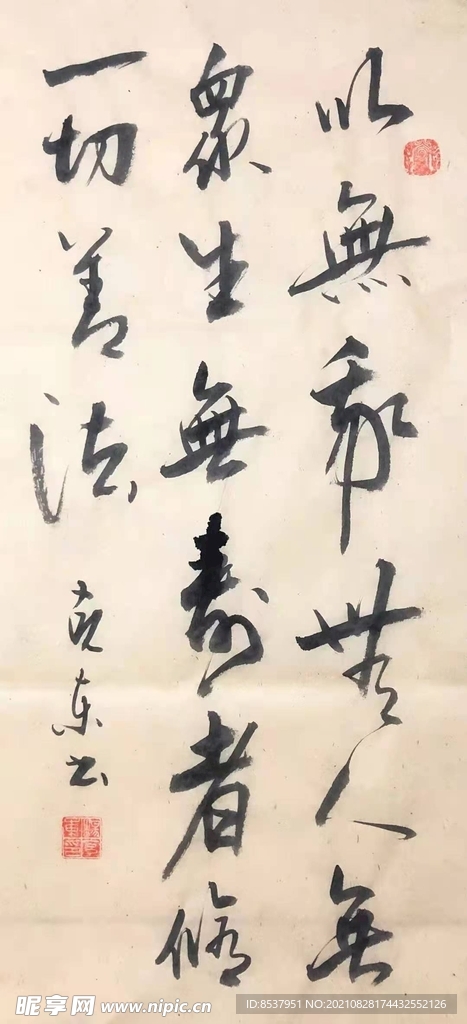 以無我無人無
眾生無壽者修
一切善法
克东书
昵享网 www.nipic.cn
ID:8537951 NO:20210828174432552126